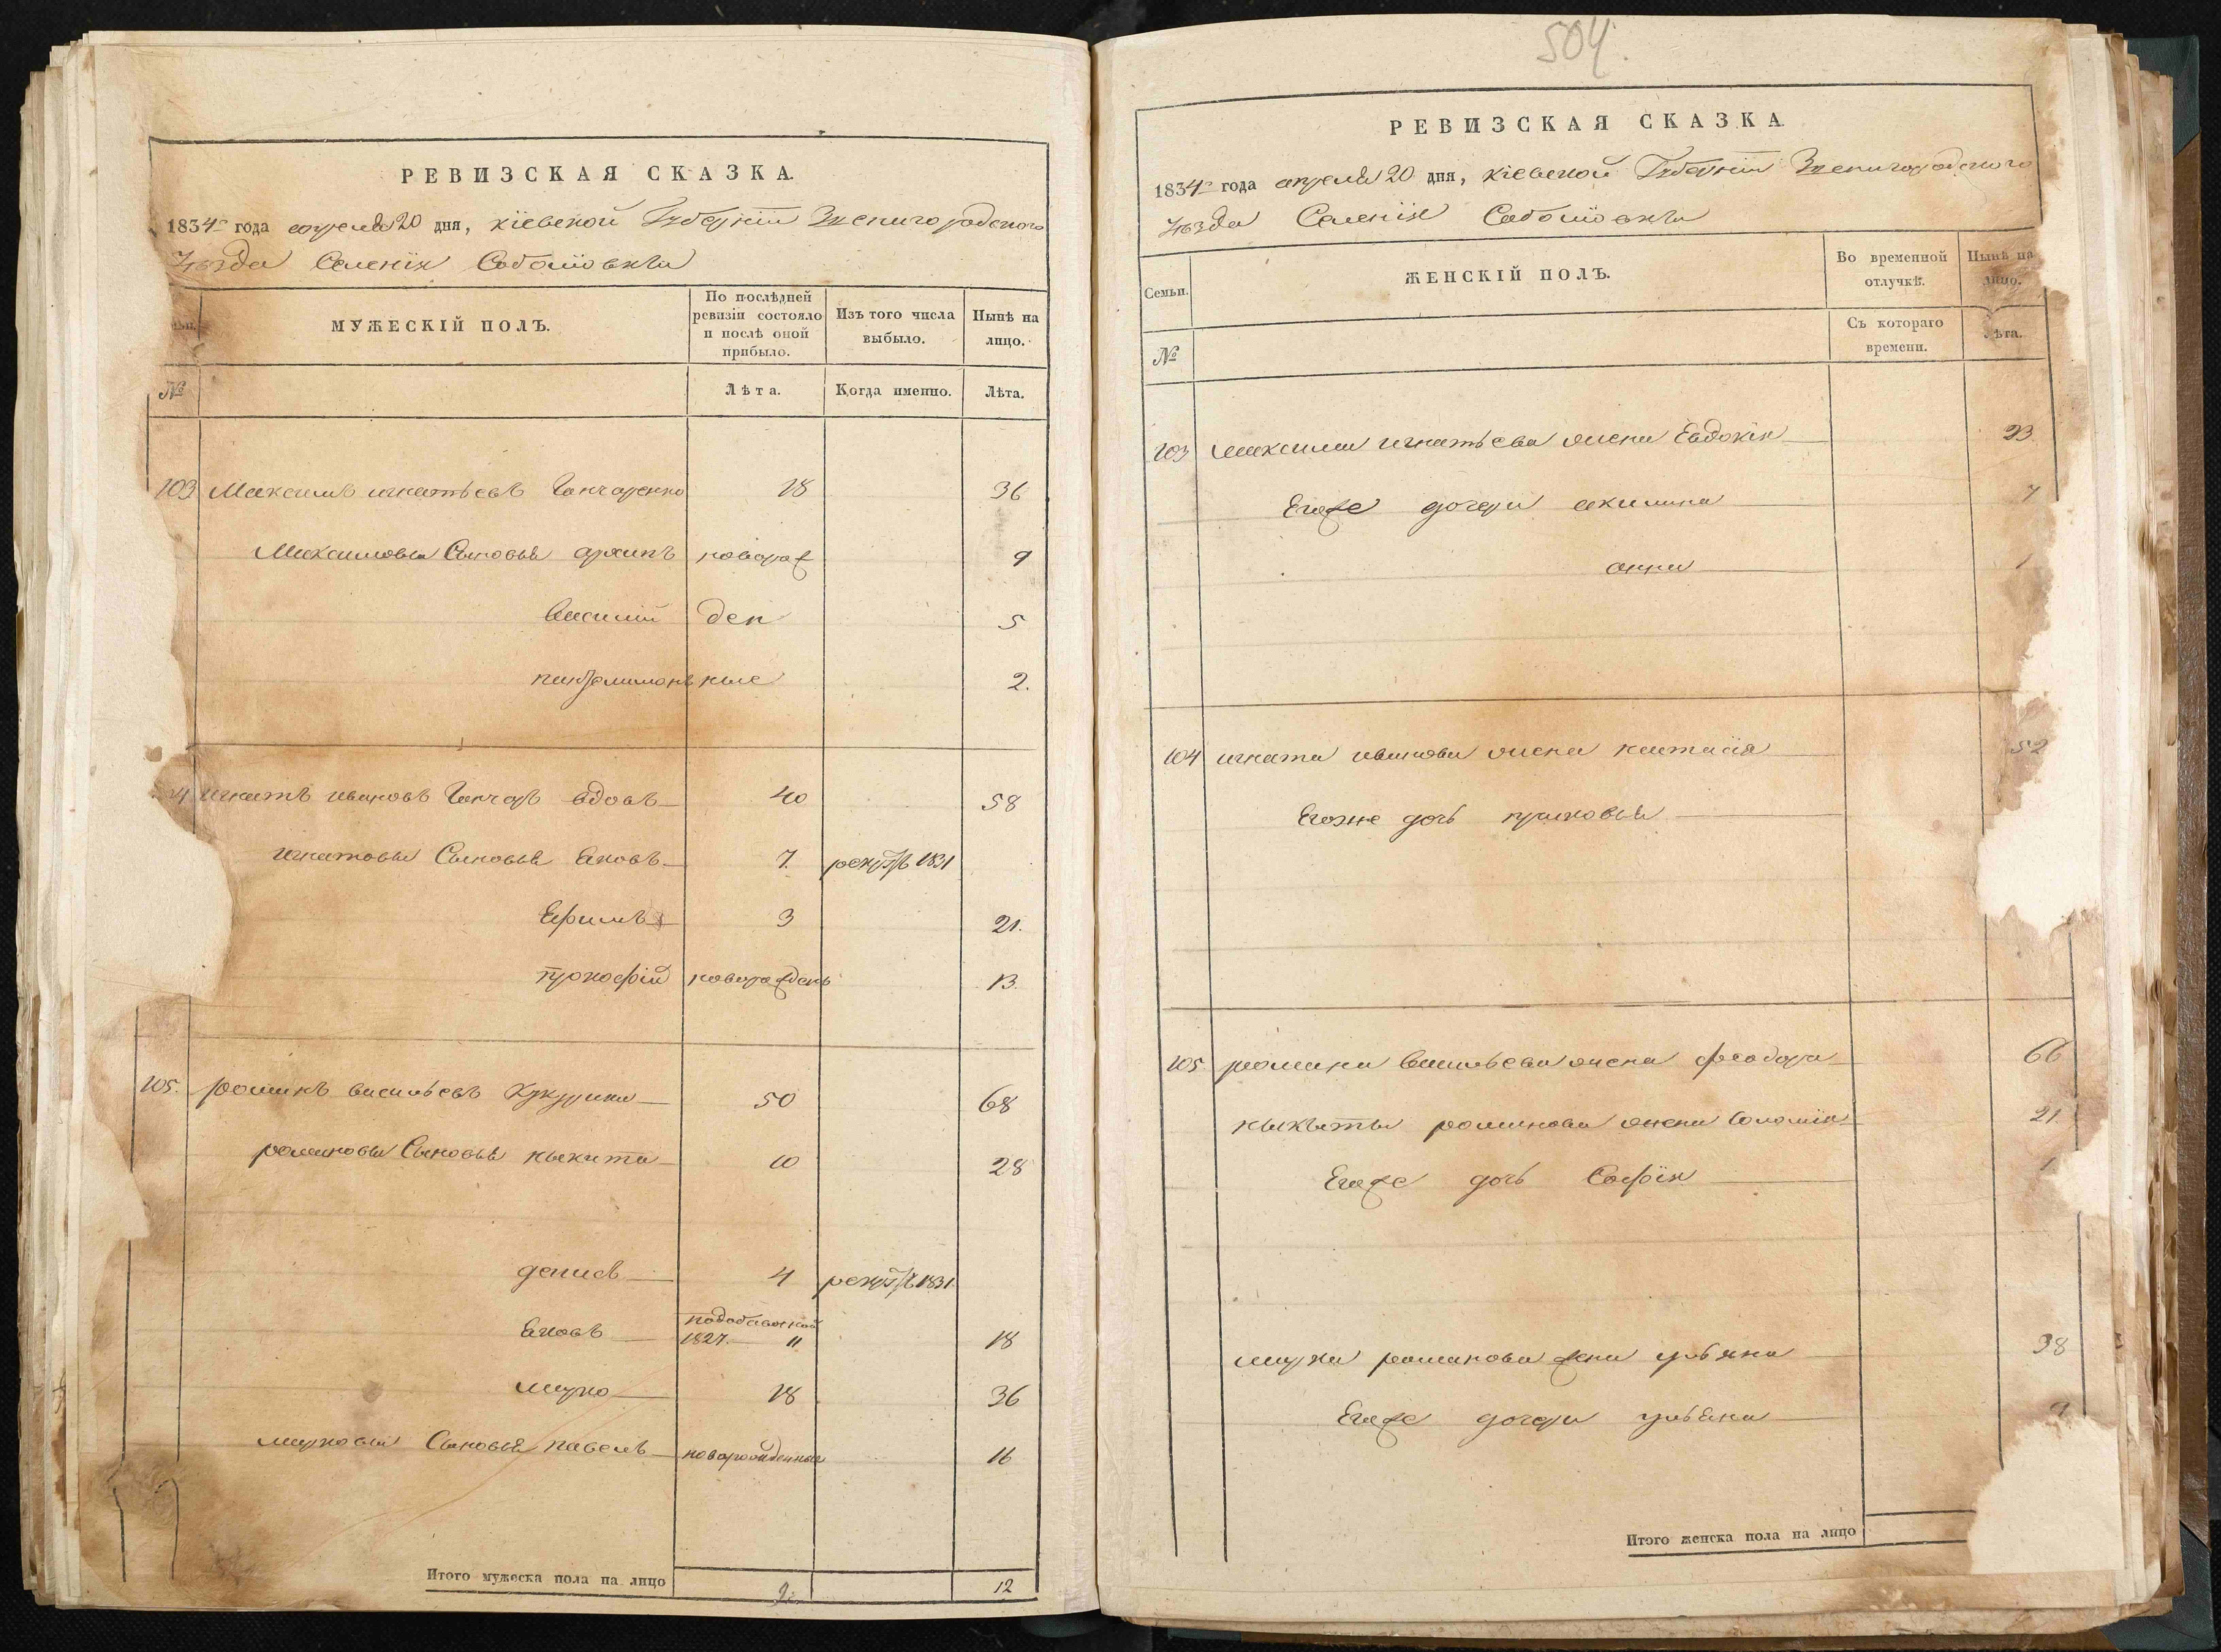 504.
РЕВИЗСКАЯ СКАЗКА.
1834 года апреля 20 дня, кіевской Губерніи Звенигородского
Уѣзда Селенія
МУЖЕСКІЙ ПОЛЪ.
По послѣдней ревизіи состояло и послѣ оной прибыло.
Изъ того числа выбыло.
Нынѣ на лицо.
№
Лѣта.
Когда именно.
Лѣта.
103 Максимъ игнатьевъ Гончаренко 18 36
Максимовы Сыновья архипъ новорож 9
Василій ден 5
пантелимонъ ные 2.
4 игнатъ ивановъ Гончаръ вдовъ 40 58
игнатовы Сыновья Яковъ 7. рекрутъ 1831
Ефимъ 3 21.
прокофій новорожденъ 13.
105. романъ васильевъ 50 68
романовы Сыновья никита 10 28
денисъ 4 рекрутъ 1831.
Яковъ 1827. 11 18
марко 18 36
марковы Сыновья павелъ новорожденный 16
Итого мужеска пола на лицо 12
РЕВИЗСКАЯ СКАЗКА
1834 года апреля 20 дня, кіевской Губерніи Звенигородского
Уѣзда Селенія
Семьи.
ЖЕНСКІЙ ПОЛЪ.
Во временной отлучкѣ.
Нынѣ на лицо.
№
Съ котораго времени.
Лѣта.
103 максима игнатьева жена Евдокія 23.
Егоже дочери акилина 7
анна 1
104 игната иванова жена настасія 52
Егоже дочь прасковья
105 романа васильева жена феодора 66
никиты романова жена Соломія 21.
Егоже дочь Софія 1
марка романова жена ульяна 38
Егоже дочери ульяна
Итого женска пола на лицо